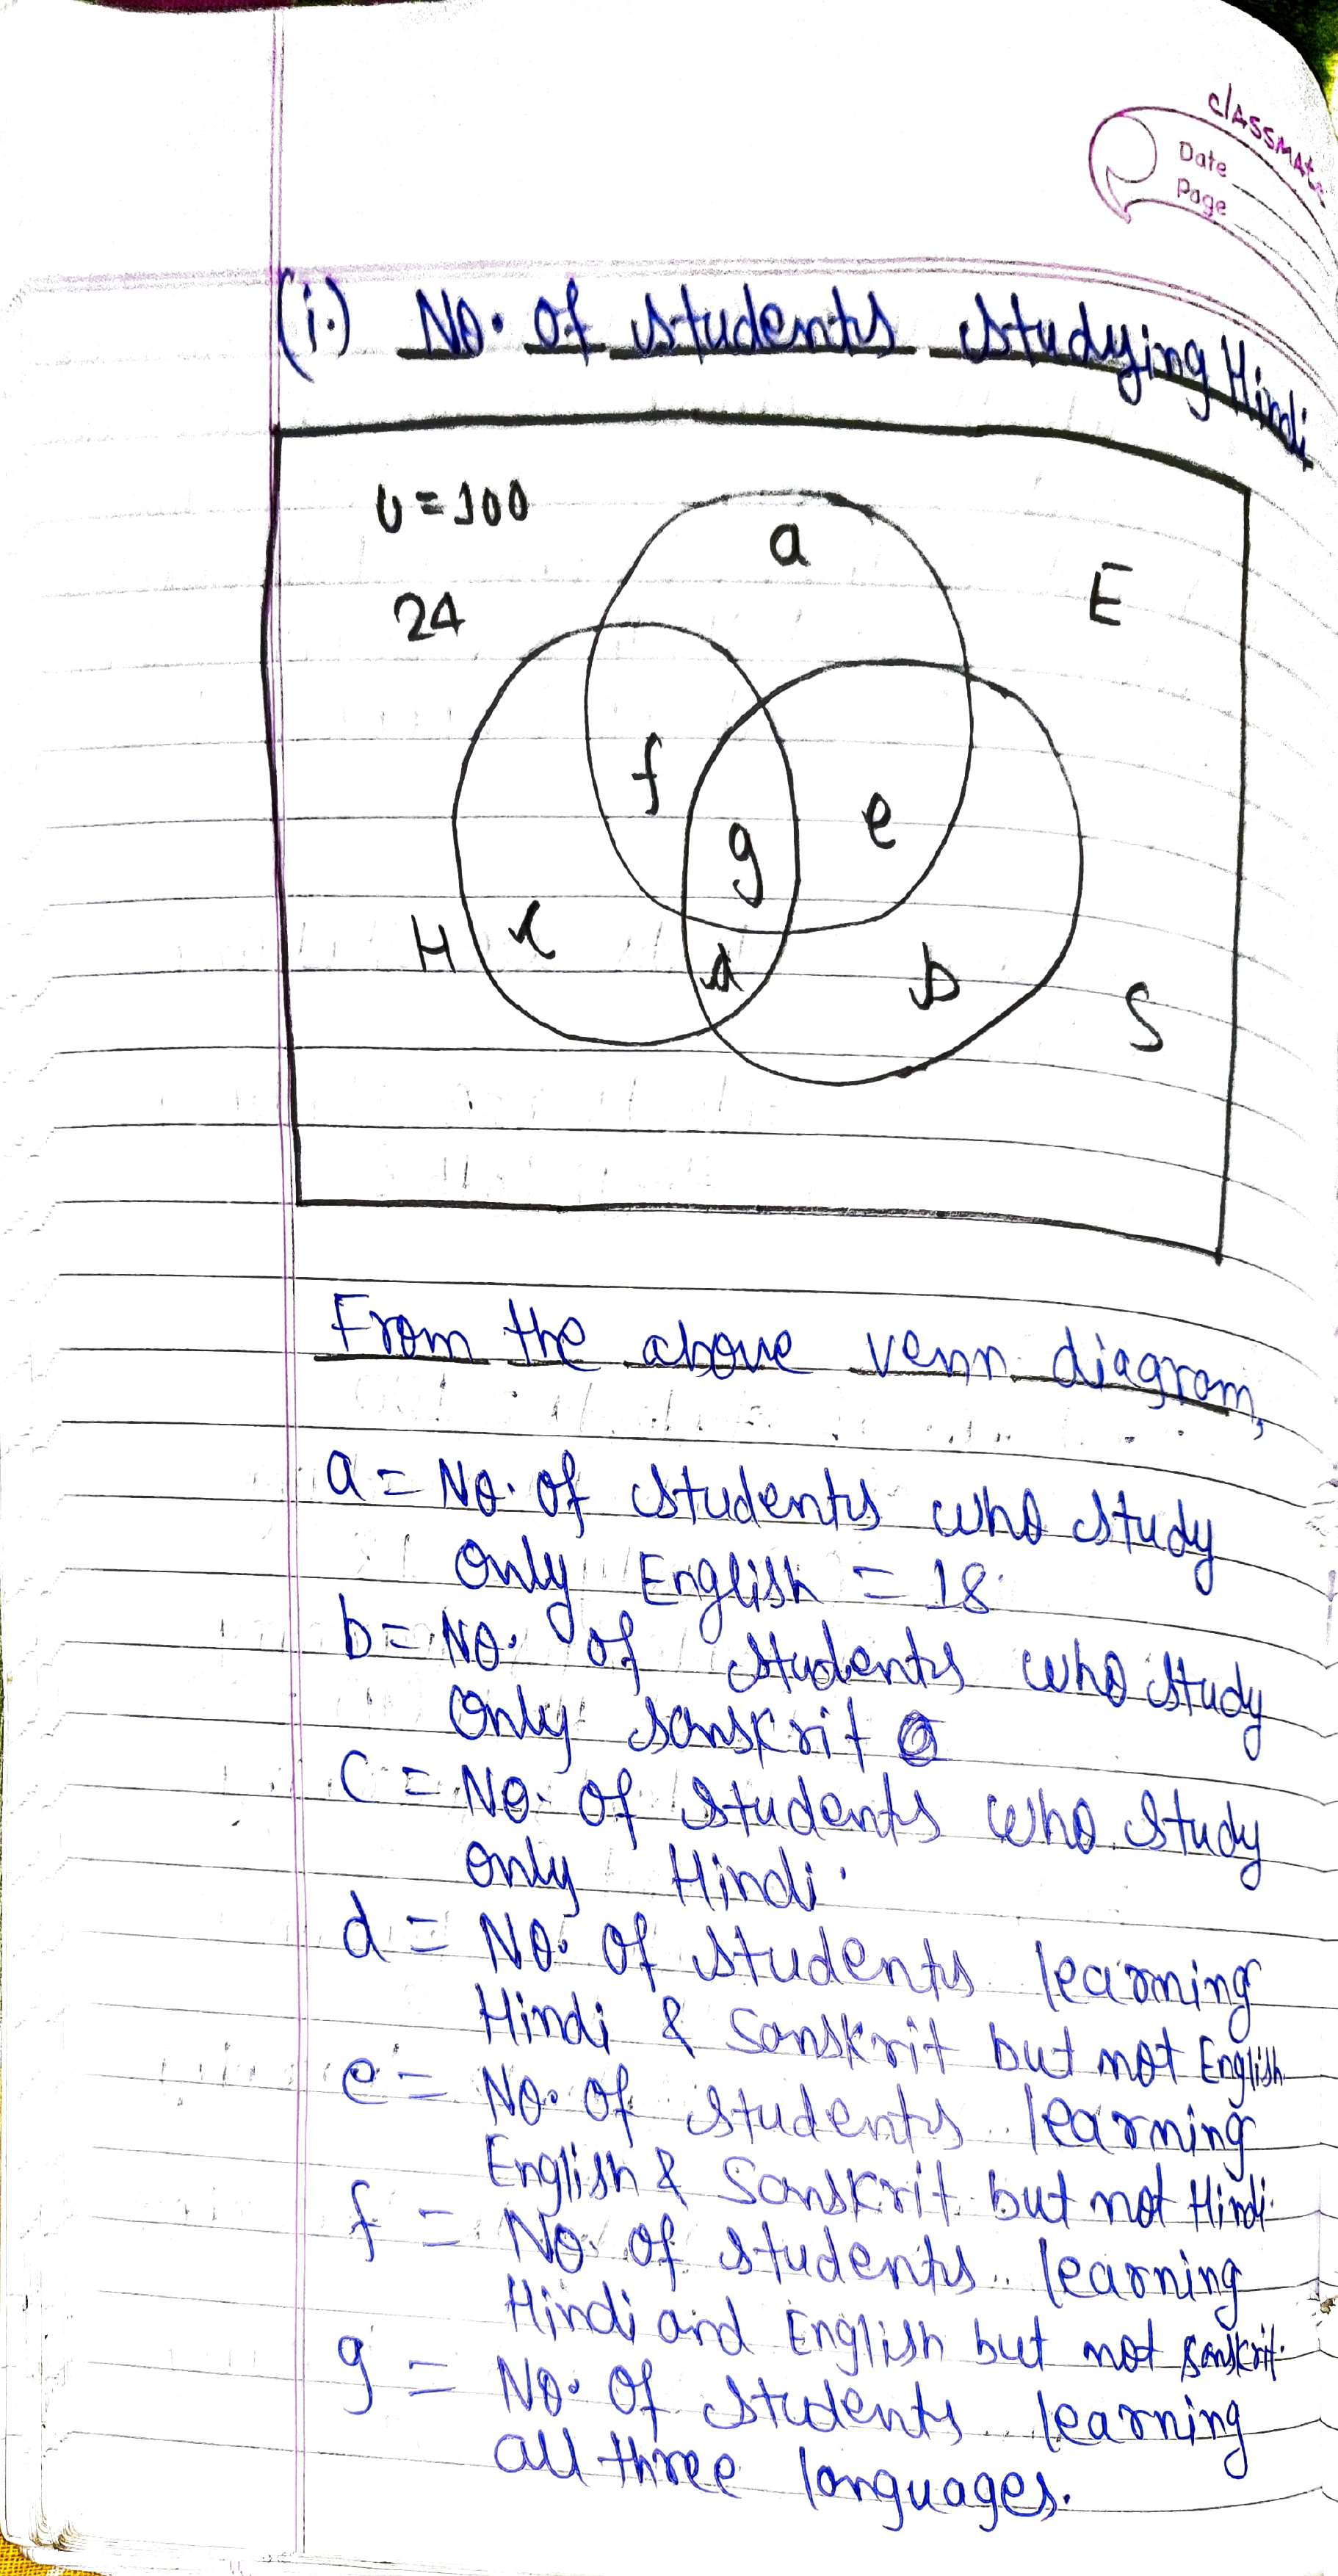 classmate
Date
Page
(i.) No. of students studying Hindi
U = 100
a
E
24
f
e
g
H
c
d
b
S
From the above venn diagram,
a = No. of students who study
only English = 18
b = No. of students who study
only sanskrit
c = No. of students who study
only Hindi.
d = No. of students learning
Hindi & Sanskrit but not English
e = No. of students learning
English & Sanskrit but not Hindi.
f = No. of students learning
Hindi and English but not sanskrit.
g = No. of students learning
all three languages.